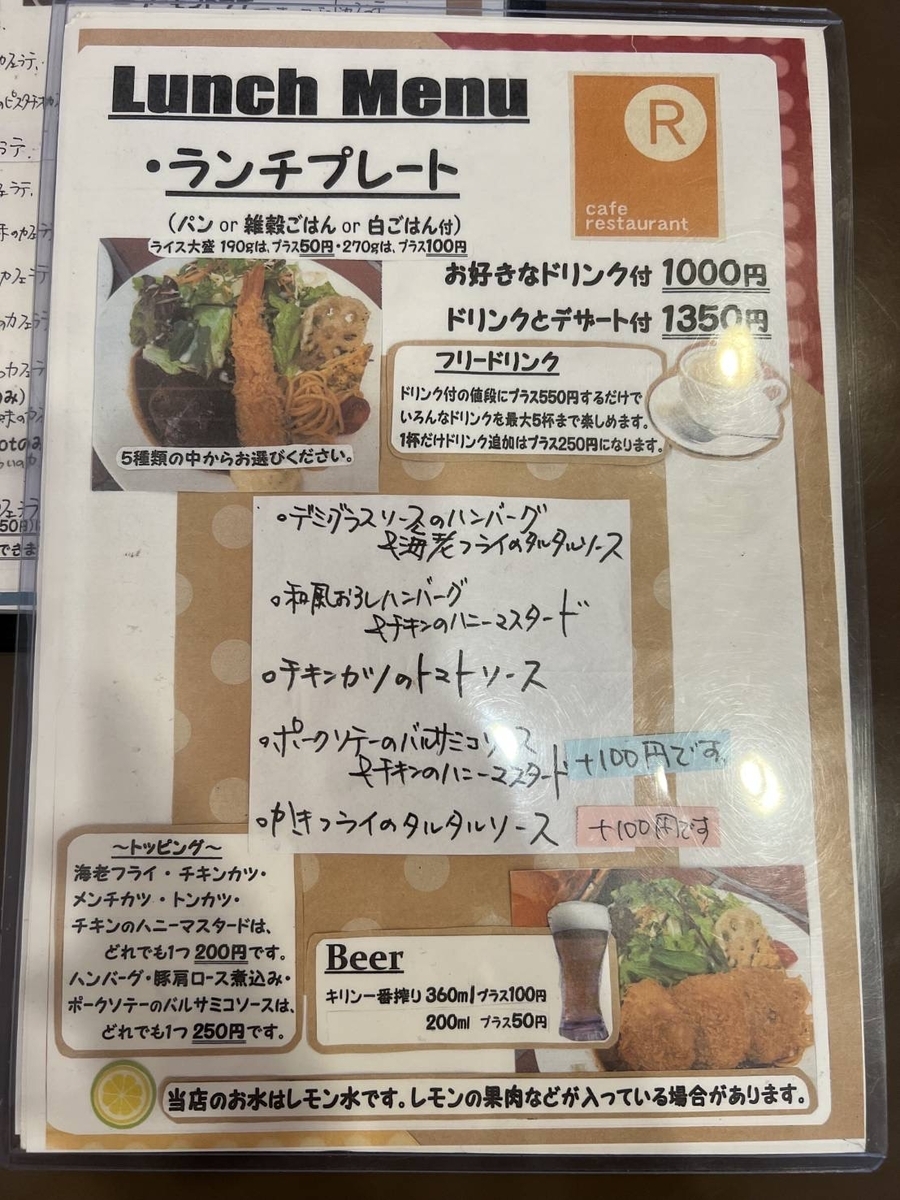 Lunch Menu
・ランチプレート
R
cafe
restaurant
(パン or 雑穀ごはん or 白ごはん付)
ライス大盛 190gは、プラス50円・270gは、プラス100円
お好きなドリンク付 1000円
ドリンクとデザート付 1350円
フリードリンク
ドリンク付の値段にプラス550円するだけで
いろんなドリンクを最大5杯まで楽しめます。
1杯だけドリンク追加はプラス250円になります。
5種類の中からお選びください。
○デミグラスソースのハンバーグ
&海老フライのタルタルソース
○和風おろしハンバーグ
&チキンのハニーマスタード
○チキンカツのトマトソース
○ポークソテーのバルサミコソース
&チキンのハニーマスタード
+100円です
○かきフライのタルタルソース
+100円です
～トッピング～
海老フライ・チキンカツ・
メンチカツ・トンカツ・
チキンのハニーマスタードは、
どれでも1つ 200円です。
ハンバーグ・豚肩ロース煮込み・
ポークソテーのバルサミコソースは、
どれでも1つ 250円です。
Beer
キリン一番搾り 360ml プラス100円
200ml プラス50円
当店のお水はレモン水です。レモンの果肉などが入っている場合があります。